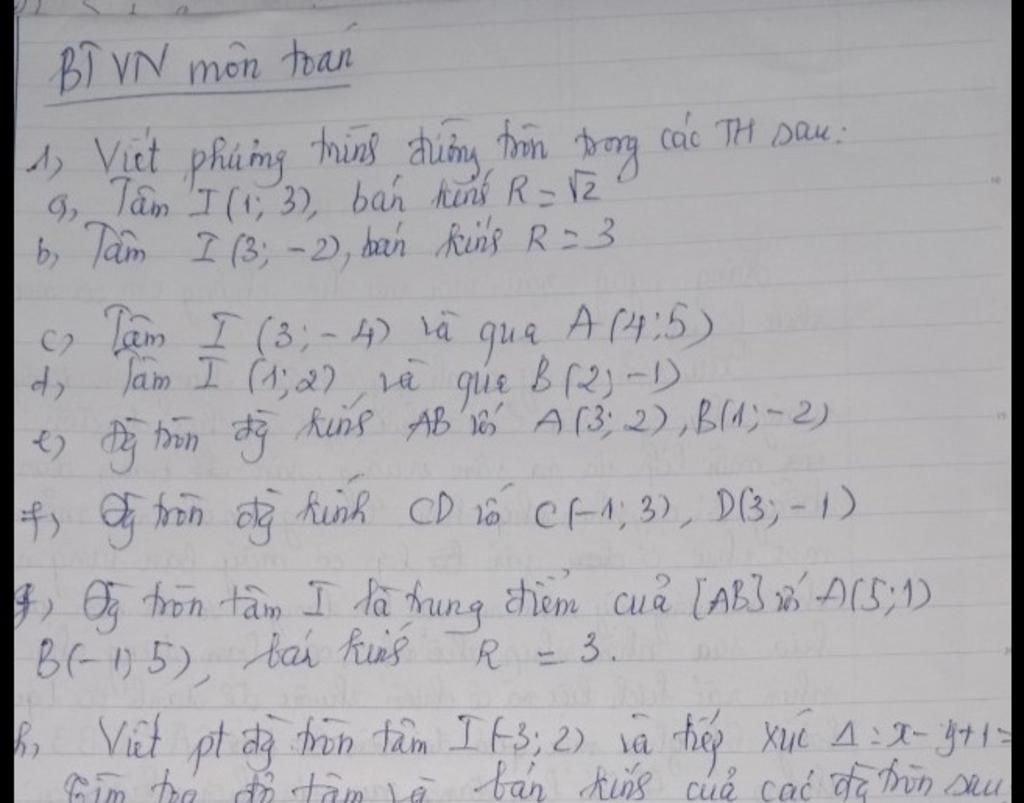 BTVN môn toán
1, Viết phương trình đường tròn trong các TH sau:
a, Tâm I(1; 3), bán kính R = √2
b, Tâm I (3; -2), bán kính R = 3
c, Tâm I (3; -4) và qua A(4;5)
d, Tâm I (1;2) và qua B(2; -1)
e, Đg tròn đg kính AB với A(3; 2), B(1; -2)
f, Đg tròn đg kính CD với C(-1; 3), D(3; -1)
g, Đg tròn tâm I là trung điểm của [AB] với A(5;1)
B(-1; 5), bán kính R = 3.
h, Viết pt đg tròn tâm I(-3; 2) và tiếp xúc Δ: x - y + 1 =
Tìm toạ độ tâm và bán kính của các đg tròn sau